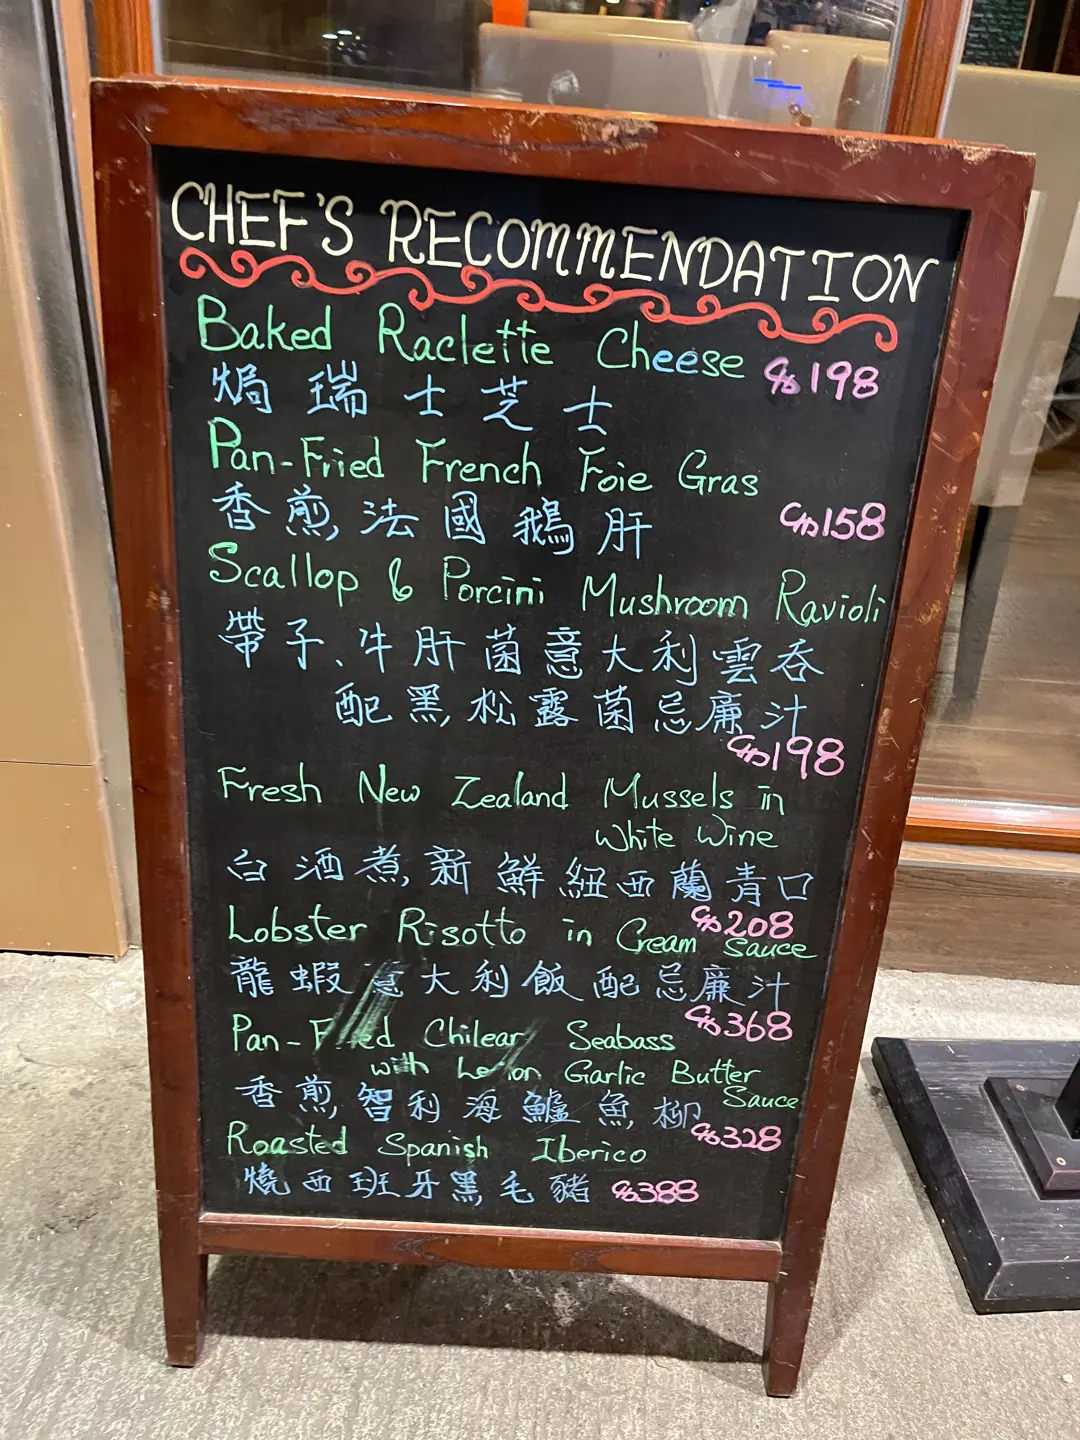 CHEF'S RECOMMENDATION
Baked Raclette Cheese
198
焗瑞士芝士
Pan-Fried French Foie Gras
香煎法國鵝肝 158
Scallop & Porcini Mushroom Ravioli
帶子、牛肝菌意大利雲吞
配黑松露菌忌廉汁
198
Fresh New Zealand Mussels in
White Wine
白酒煮新鮮紐西蘭青口
208
Lobster Risotto in Cream Sauce
龍蝦意大利飯配忌廉汁
368
Pan-Fried Chilear Seabass
with Lemon Garlic Butter
Sauce
香煎智利海鱸魚柳 328
Roasted Spanish Iberico
燒西班牙黑毛豬 388